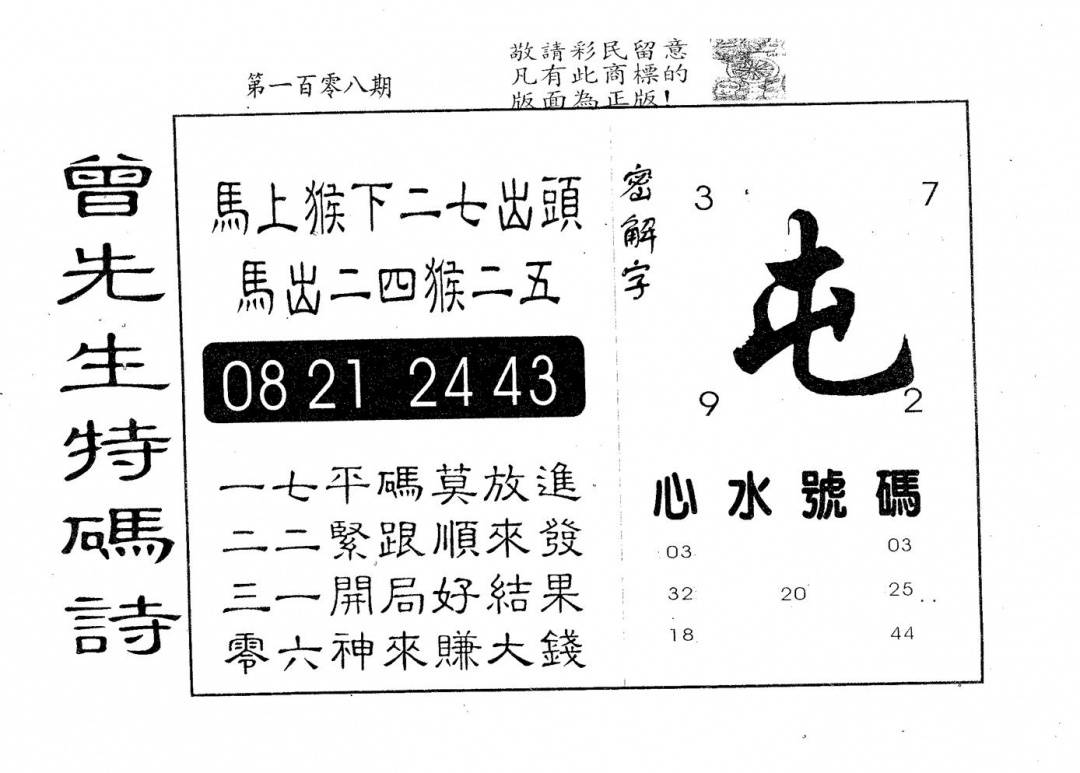 敬請彩民留意
凡有此商標的
版面為正版!
第一百零八期
曾先生特碼詩
馬上猴下二七出頭
馬出二四猴二五
08 21 24 43
一七平碼莫放進
二二緊跟順來發
三一開局好結果
零六神來賺大錢
密解字
3 7
屯
9 2
心水號碼
03 03
32 20 25
18 44